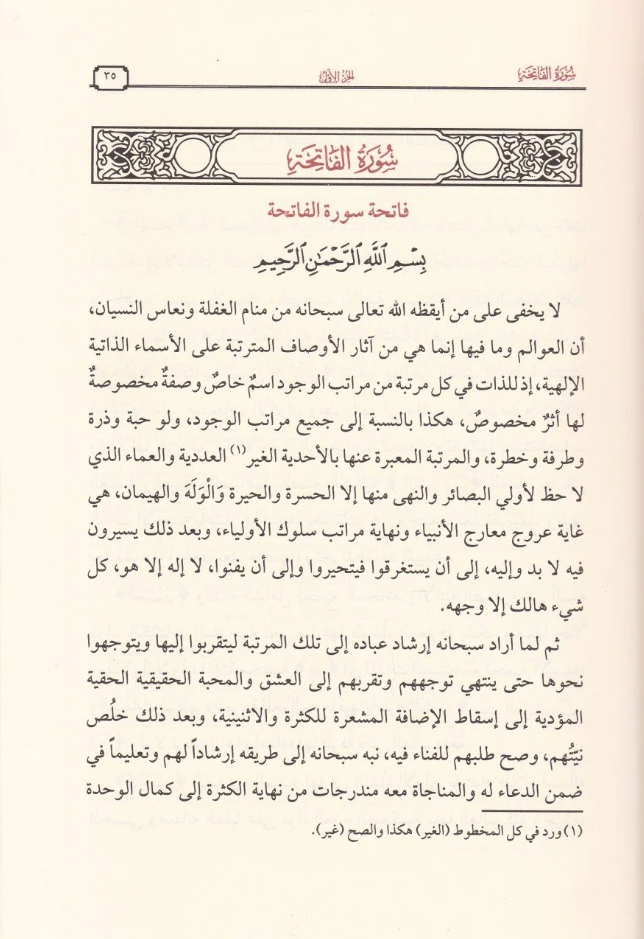 سُورَةُ الفَاتِحَةِ
الجزء الأول
٣٥
سُورَةُ الفَاتِحَةِ
فاتحة سورة الفاتحة
بِسْمِ ٱللَّهِ ٱلرَّحْمَٰنِ ٱلرَّحِيمِ
لا يخفى على من أيقظه الله تعالى سبحانه من منام الغفلة ونعاس النسيان،
أن العوالم وما فيها إنما هي من آثار الأوصاف المترتبة على الأسماء الذاتية
الإلهية، إذ للذات في كل مرتبة من مراتب الوجود اسمٌ خاصٌ وصفةٌ مخصوصةٌ
لها أثرٌ مخصوصٌ، هكذا بالنسبة إلى جميع مراتب الوجود، ولو حبة وذرة
وطرفة وخطرة، والمرتبة المعبرة عنها بالأحدية الغير(١) العددية والعماء الذي
لا حظ لأولي البصائر والنهى منها إلا الحسرة والحيرة وَالْوَلَهَ والهيمان، هي
غاية عروج معارج الأنبياء ونهاية مراتب سلوك الأولياء، وبعد ذلك يسيرون
فيه لا بد وإليه، إلى أن يستغرقوا فيتحيروا وإلى أن يفنوا، لا إله إلا هو، كل
شيء هالك إلا وجهه.
ثم لما أراد سبحانه إرشاد عباده إلى تلك المرتبة ليتقربوا إليها ويتوجهوا
نحوها حتى ينتهي توجههم وتقربهم إلى العشق والمحبة الحقيقية الحقية
المؤدية إلى إسقاط الإضافة المشعرة للكثرة والاثنينية، وبعد ذلك خلُص
نيّتُهم، وصح طلبهم للفناء فيه، نبه سبحانه إلى طريقه إرشاداً لهم وتعليماً في
ضمن الدعاء له والمناجاة معه مندرجات من نهاية الكثرة إلى كمال الوحدة
(١) ورد في كل المخطوط (الغير) هكذا والصح (غير).